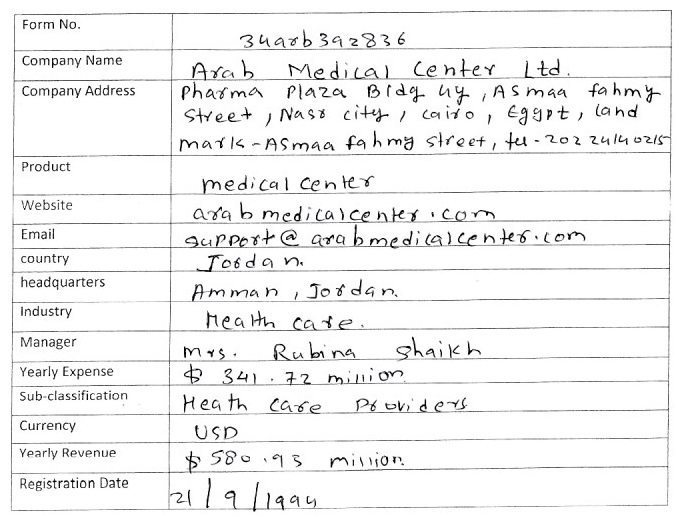 Form No. 34arb392836
Company Name Arab Medical Center Ltd.
Company Address Pharma Plaza Bldg 4y, ASmaa fahmy
street, Nasr city, cairo, Egypt, land
mark-ASmaa fahmy street, tel-202 24140215
Product medical center
Website arabmedicalcenter.com
Email support@arabmedicalcenter.com
country Jordan.
headquarters Amman, Jordan.
Industry Health care.
Manager Mrs. Rubina Shaikh
Yearly Expense $ 341.72 million
Sub-classification Heath Care Providers
Currency USD
Yearly Revenue $ 580.93 million
Registration Date 21/9/1994